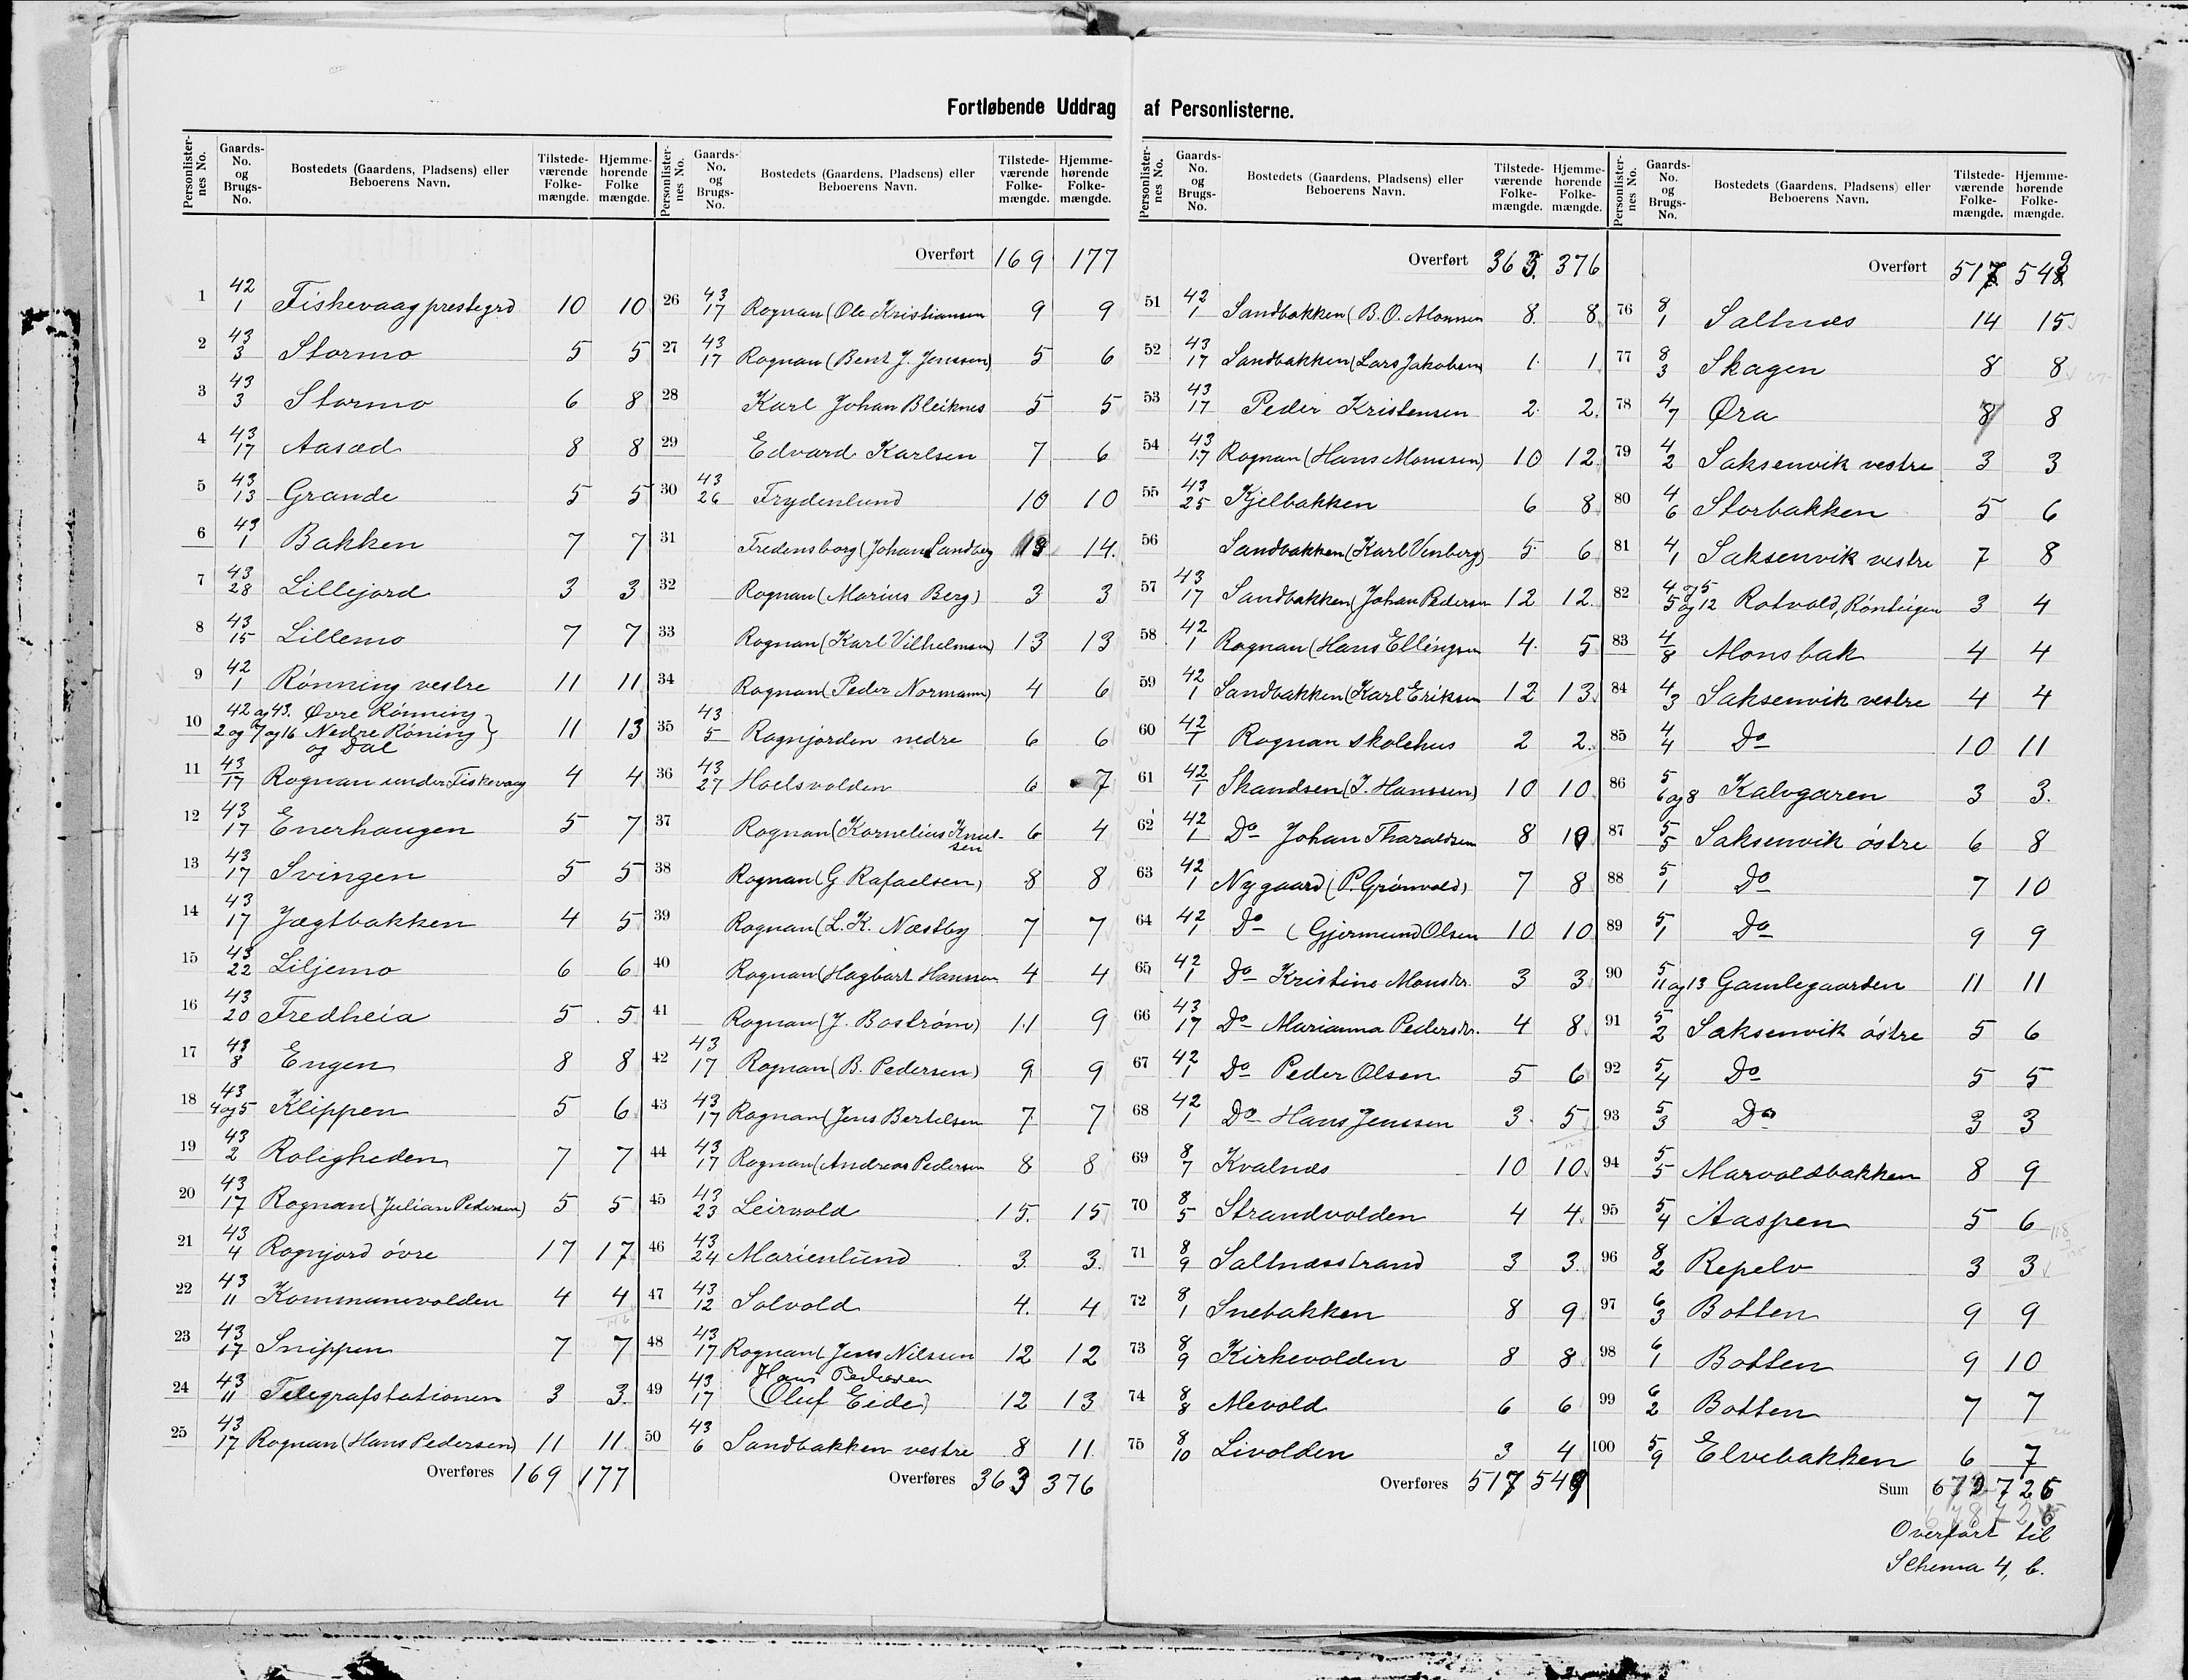 Fortløbende Uddrag af Personlisterne.
Personlister-nes No. Gaards-No. og Brugs-No. Bostedets (Gaardens, Pladsens) eller Beboerens Navn. Tilstede-værende Folke-mængde. Hjemme-hørende Folke mængde.
1 42/1 Fiskevaag prestegrd 10 10
2 43/3 Stormo 5 5
3 43/3 Stormo 6 8
4 43/17 Aasæd 8 8
5 43/13 Grande 5 5
6 43/1 Bakken 7 7
7 43/28 Lillejord 3 3
8 43/15 Lillemo 7 7
9 42/1 Rønning vestre 11 11
10 42 og 43. Øvre Rønning
2 og 7 og 16 Nedre Røning 11 13
og Dal
11 43/17 Rognan under Fiskevaag 4 4
12 43/17 Enerhaugen 5 7
13 43/17 Svingen 5 5
14 43/17 Jægtbakken 4 5
15 43/22 Liljemo 6 6
16 43/20 Fredheia 5 5
17 43/8 Engen 8 8
18 43/4 og 5 Klippen 5 6
19 43/2 Roligheden 7 7
20 43/17 Rognan (Julian Pedersen) 5 5
21 43/4 Rognjord øvre 17 17
22 43/11 Kommunevolden 4 4
23 43/17 Snippen 7 7
24 43/11 Telegrafstationen 3 3
25 43/17 Rognan (Hans Pedersen) 11 11
Overføres 169 177
Personlister-nes No. Gaards-No. og Brugs-No. Bostedets (Gaardens, Pladsens) eller Beboerens Navn. Tilstede-værende Folke-mængde. Hjemme-hørende Folke-mængde.
Overført 169 177
26 43/17 Rognan (Ole Kristiansen 9 9
27 43/17 Rognan (Bent J. Jenssen) 5 6
28 Karl Johan Bleiknes 5 5
29 Edvard Karlsen 7 6
30 43/26 Frydenlund 10 10
31 Fredensborg (Johan Sandberg 14.
32 Rognan (Marius Berg) 3 3
33 Rognan (Karl Vilhelmsen) 13 13
34 Rognan (Peder Normann) 4 6
35 43/5 Rognjorden nedre 6 6
36 43/27 Hoelsvolden 6 7
37 Rognan (Kornelius Knut-
sen 6 4
38 Rognan (G Rafaelsen) 8 8
39 Rognan (L. K. Næstby 7 7
40 Rognan (Hagbart Hanssen 4 4
41 Rognan (J. Bostrøm) 11 9
42 43/17 Rognan (B. Pedersen) 9 9
43 43/17 Rognan (Jens Bertelsen 7 7
44 43/17 Rognan (Andreas Pedersen 8 8
45 43/23 Leirvold 15. 15
46 43/24 Marienlund 3 3.
47 43/12 Solvold 4. 4
48 43/17 Rognan (Jens Nilssen 12 12
49 43/17 Hans Pedersen
(Oluf Eide) 12 13
50 43/6 Sandbakken vestre 8 11
Overføres 363 376
Personlister-nes No. Gaards-No. og Brugs-No. Bostedets (Gaardens, Pladsens) eller Beboerens Navn. Tilstede-værende Folke-mængde. Hjemme-hørende Folke-mængde.
Overført 363. 376
51 42/1 Sandbakken (B. O. Monssen 8. 8
52 43/17 Sandbakken (Lars Jakobsen) 1. 1
53 43/17 Peder Kristensen 2. 2.
54 43/17 Rognan (Hans Monssen) 10 12
55 43/25 Kjelbakken 6 8
56 Sandbakken (Karl Venberg) 5 6
57 43/17 Sandbakken (Johan Pedersen 12 12
58 42/1 Rognan (Hans Ellingsen 4. 5
59 42/1 Sandbakken (Karl Eriksen 12 13
60 42/1 Rognan skolehus 2 2
61 42/1 Skandsen (J. Hanssen) 10 10
62 42/1 Do Johan Tharaldsen 8 10
63 42/1 Nygaard (P. Grønvold) 7 8
64 42/1 Do (Gjermund Olsen 10 10
65 42/1 Do Kristine Monsdr. 3 3
66 43/17 Do Marianna Pedersdr. 4 8
67 42/1 Do Peder Olsen 5 6
68 42/1 Do Hans Jenssen 3. 5
69 8/7 Kvalnæs 10 10
70 8/5 Strandvolden 4 4
71 8/9 Saltnæsstrand 3 3
72 8/1 Snebakken 8 9
73 8/9 Kirkevolden 8 8
74 8/8 Mevold 6 6
75 8/10 Livolden 3 4
Overføres 517 549
Personlister-nes No. Gaards-No. og Brugs-No. Bostedets (Gaardens, Pladsens) eller Beboerens Navn. Tilstede-værende Folke-mængde. Hjemme-hørende Folke-mængde.
Overført 517 549
76 8/1 Saltnæs 14 15
77 8/3 Skagen 8 8
78 4/7 Øra 8 8
79 4/2 Saksenvik vestre 3 3
80 4/6 Storbakken 5 6
81 4/1 Saksenvik vestre 7 8
82 4 og 5/5 og 12 Rotvold, Rønteigen 3 4
83 4/8 Monsbak 4 4
84 4/3 Saksenvik vestre 4 4
85 4/4 Do 10 11
86 5/6 og 8 Kalvgaren 3 3.
87 5/5 Saksenvik østre 6 8
88 5/1 Do 7 10
89 5/1 Do 9 9
90 5/11 og 13 Gamlegaarden 11 11
91 5/2 Saksenvik østre 5 6
92 5/4 Do 5 5
93 5/3 Do 3 3
94 5/5 Marvoldbakken 8 9
95 5/4 Aaspen 5 6
96 8/2 Repelv 3 3
97 6/3 Botten 9 9
98 6/1 Botten 9 10
99 6/2 Botten 7 7
100 5/9 Elvebakken 6 7
Sum 726
Overført til
Schema 4, b.